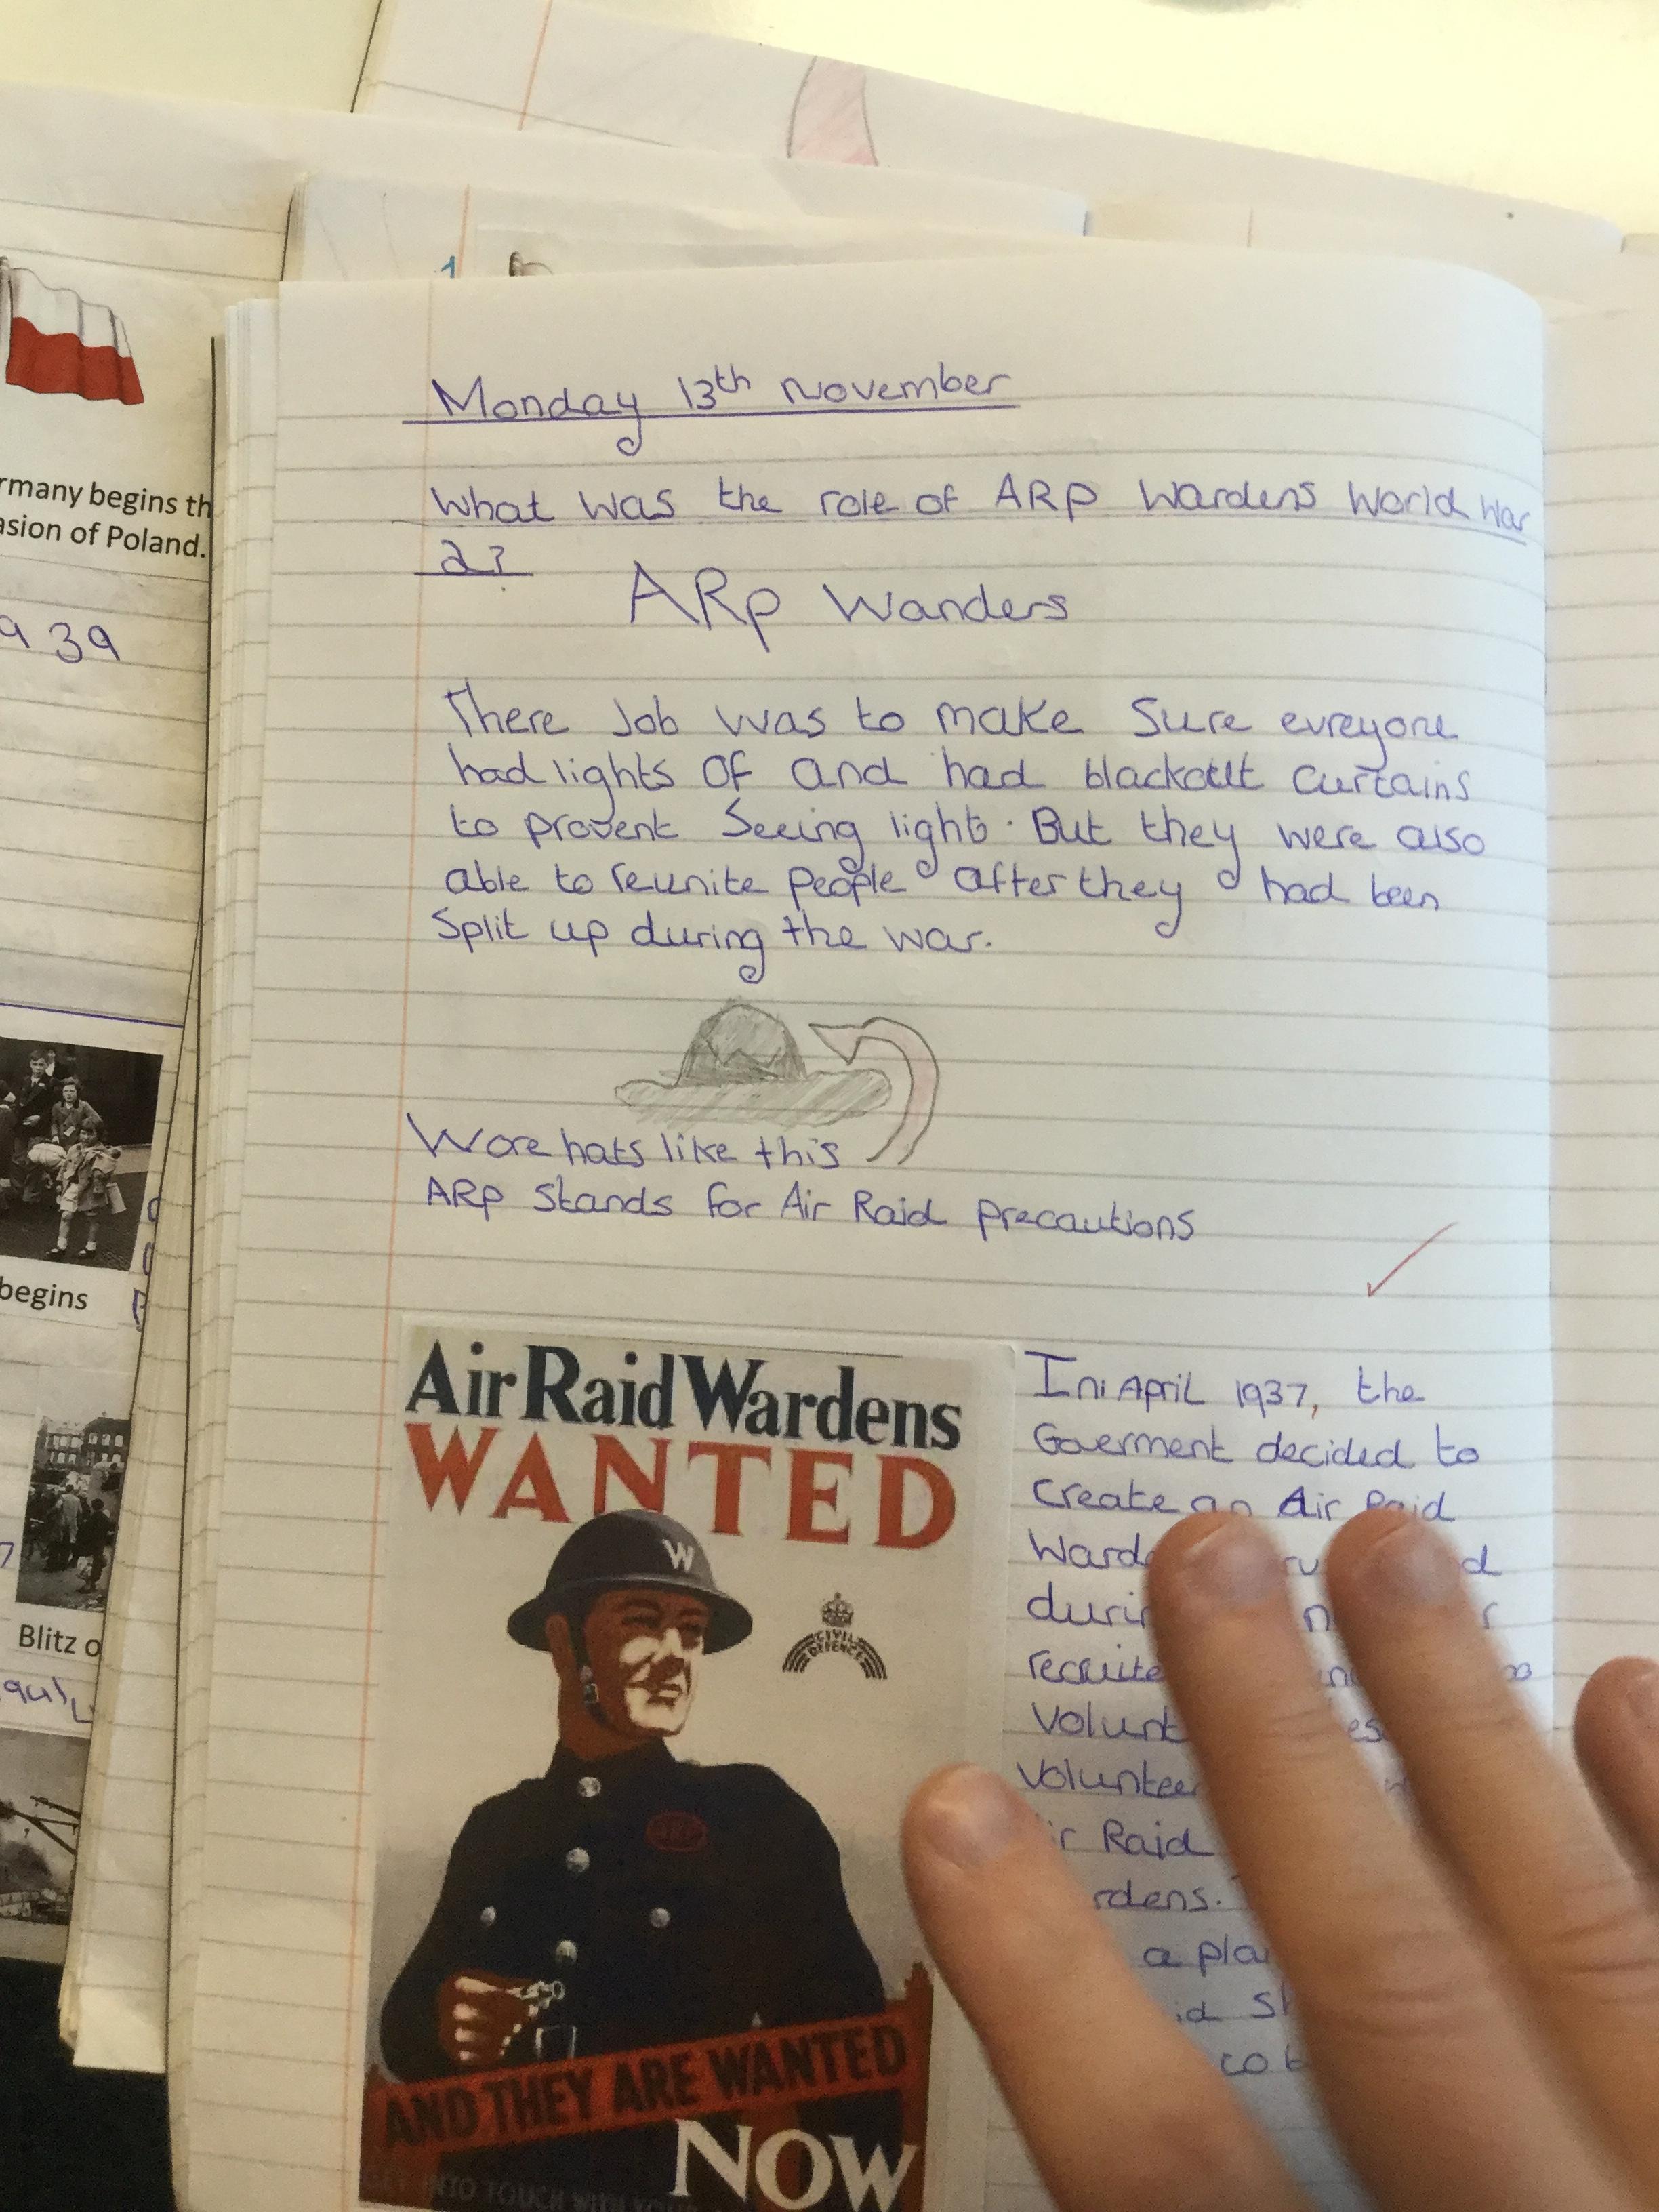 rmany begins th
asion of Poland.
939
begins
Blitz o
Monday 13th November
What was the role of ARP Wardens World War
2?
ARP Wanders
There Job was to make Sure evreyone
had lights of and had blackout curtains
to prevent Seeing light. But they were also
able to reunite people after they had been
Split up during the war.
Wore hats like this
ARP Stands for Air Raid Precautions
Air Raid Wardens
WANTED
W
CIVIL
DEFENCE
AND THEY ARE WANTED
NOW
INTO TOUCH WITH
In April 1937, the
Goverment decided to
create an Air Raid
Warde
durin
recruite
Volunt
Volunteer
Raid
rdens.
a pla